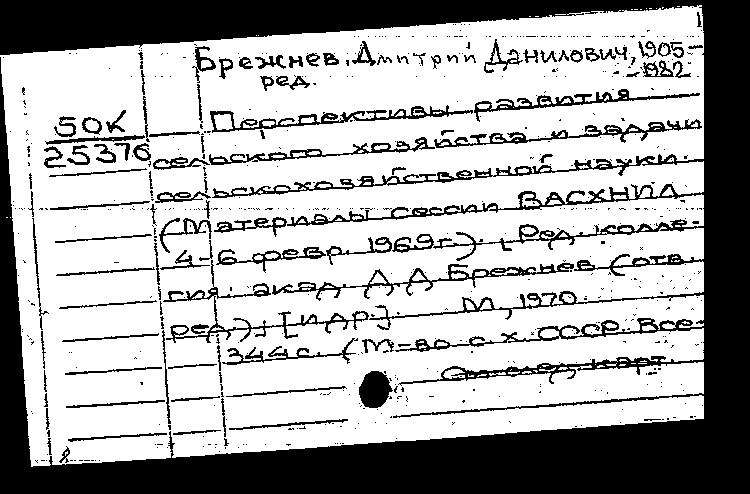 Брежнев, Дмитрий Данилович, 1905-
1982
ред.
50К
25376
Перспективы развития
сельского хозяйства и задачи
сельскохозяйственной науки.
(Материалы сессии ВАСХНИЛ
4-6 февр. 1969г.). [Ред. колле-
гия: акад. Д.Д Брежнев (отв.
ред.) и [др]. М, 1970.
344с. (М-во с. х. СССР. Все-
См. след. карт.
8